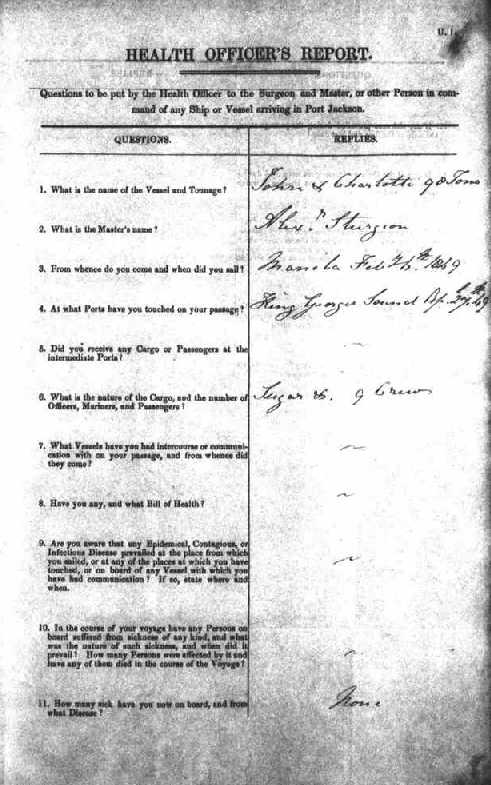 HEALTH OFFICER'S REPORT.
Questions to be put by the Health Officer to the Surgeon and Master, or other Person in com-
mand of any Ship or Vessel arriving in Port Jackson.
QUESTIONS. REPLIES.
1. What is the name of the Vessel and Tonnage? John & Charlotte 98 Tons
2. What is the Master's name? Alexr Sturgeon
3. From whence do you come and when did you sail? Manila Feb 1849
4. At what Ports have you touched on your passage? King Georges Sound Ap. 49
5. Did you receive any Cargo or Passengers at the
intermediate Ports? ~
6. What is the nature of the Cargo, and the number of
Officers, Mariners, and Passengers? Sugar &c. 9 Crew
7. What Vessels have you had intercourse or communi-
cation with on your passage, and from whence did
they come? ~
8. Have you any, and what Bill of Health? ~
9. Are you aware that any Epidemical, Contagious, or
Infectious Disease prevailed at the place from which
you sailed, or at any of the places at which you have
touched, or on board of any Vessel with which you
have had communication? If so, state where and
when. ~
10. In the course of your voyage have any Persons on
board suffered from sickness of any kind, and what
was the nature of such sickness, and when did it
prevail? How many Persons were affected by it and
have any of them died in the course of the Voyage? ~
11. How many sick have you now on board, and from
what Disease? None